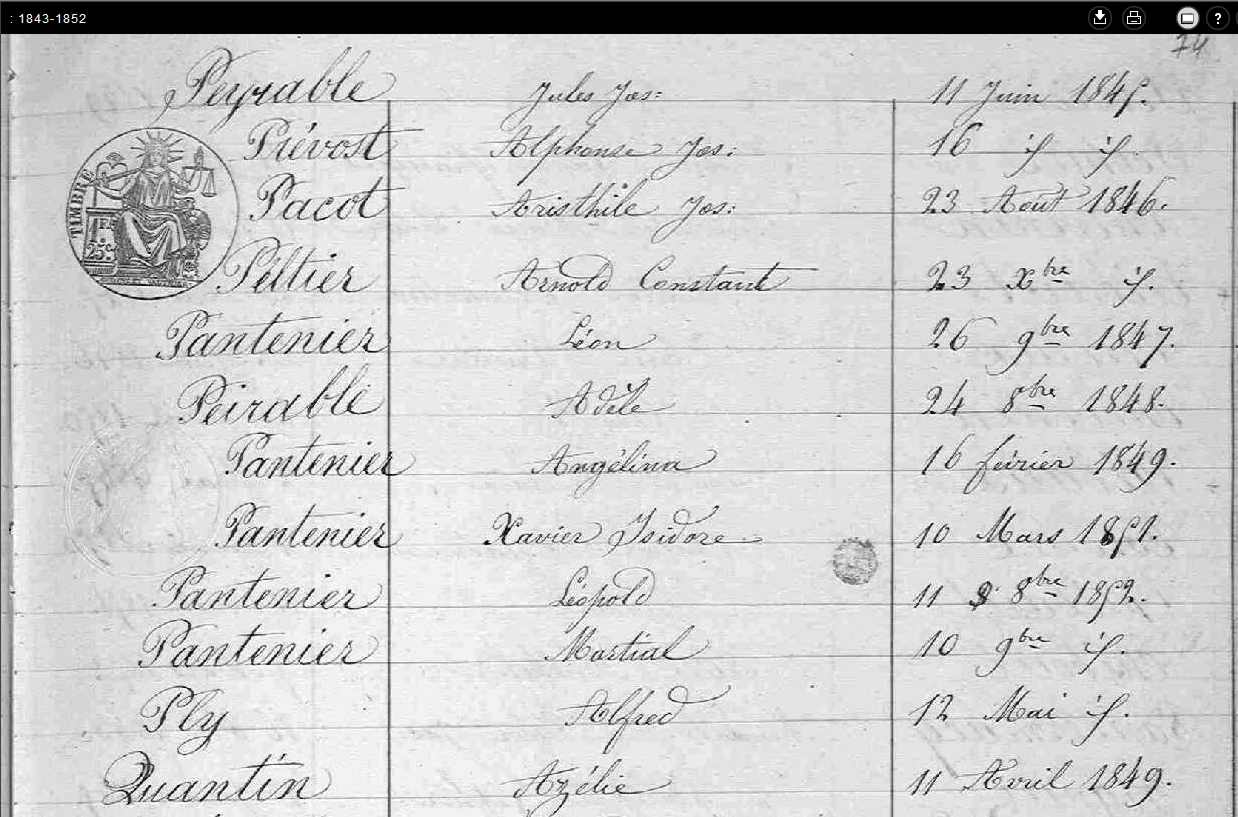 : 1843-1852
?
74
Peyrable Jules Jos: 11 Juin 1845.
Prévost Alphonse Jos: 16 id id.
TIMBRE
Pacot Aristhile Jos: 23 Aout 1846.
25c
Peltier Arnold Constant 23 Xbre id.
Pantenier Léon 26 9bre 1847.
Peirable Adèle 24 8bre 1848.
Pantenier Angélina 16 février 1849.
Pantenier Xavier Isidore 10 Mars 1851.
Pantenier Léopold 11 8bre 1852.
Pantenier Martial 10 9bre id.
Ply Alfred 12 Mai id.
Quantin Azélie 11 Avril 1849.